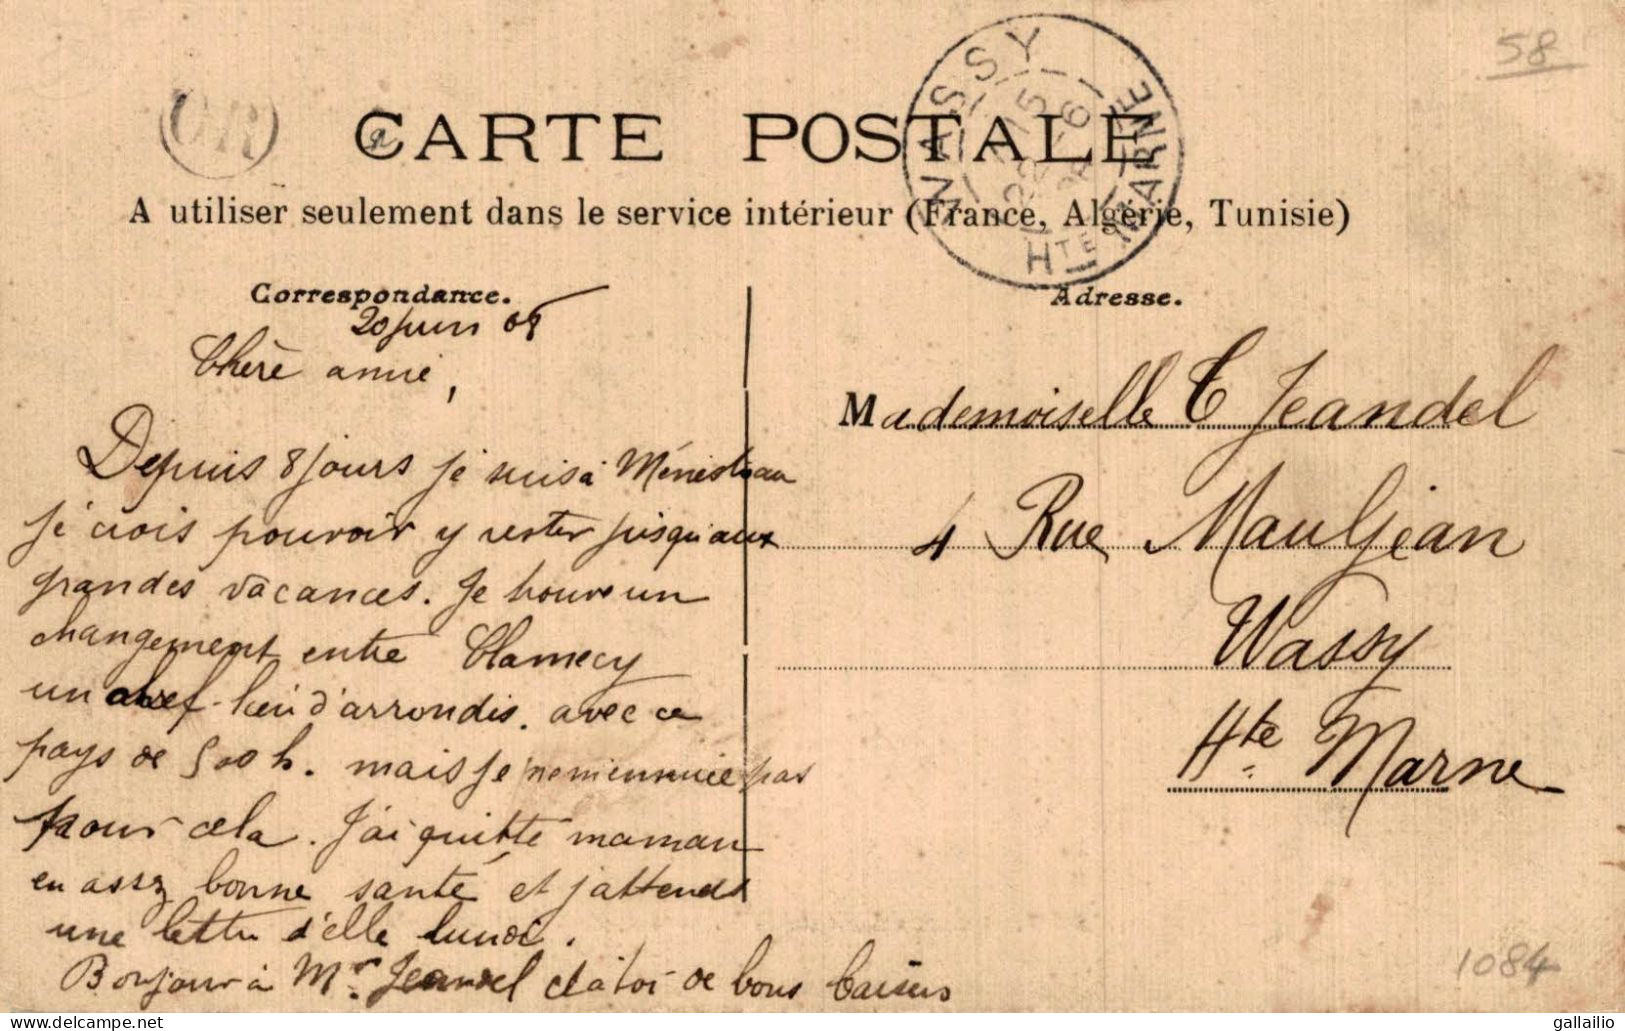 58
OR
CARTE POSTALE
WASSY
15
22 - 6
Hte MARNE
A utiliser seulement dans le service intérieur (France, Algérie, Tunisie)
Correspondance.
20 juin 08
Chère amie,
Depuis 8 jours je suis à Ménestreau
je crois pouvoir y rester jusqu'aux
grandes vacances. Je trouve un
changement entre Clamecy
un chef-lieu d'arrondis. avec ce
pays de 500 h. mais je ne m'ennuie pas
pour cela. J'ai quitté maman
en assez bonne santé et j'attends
une lettre d'elle lundi.
Bonjour à Mr Jeandel et à toi de bons baisers
Adresse.
Mademoiselle C Jeandel
4 Rue Mauljean
Wassy
Hte Marne
1084
gallailio